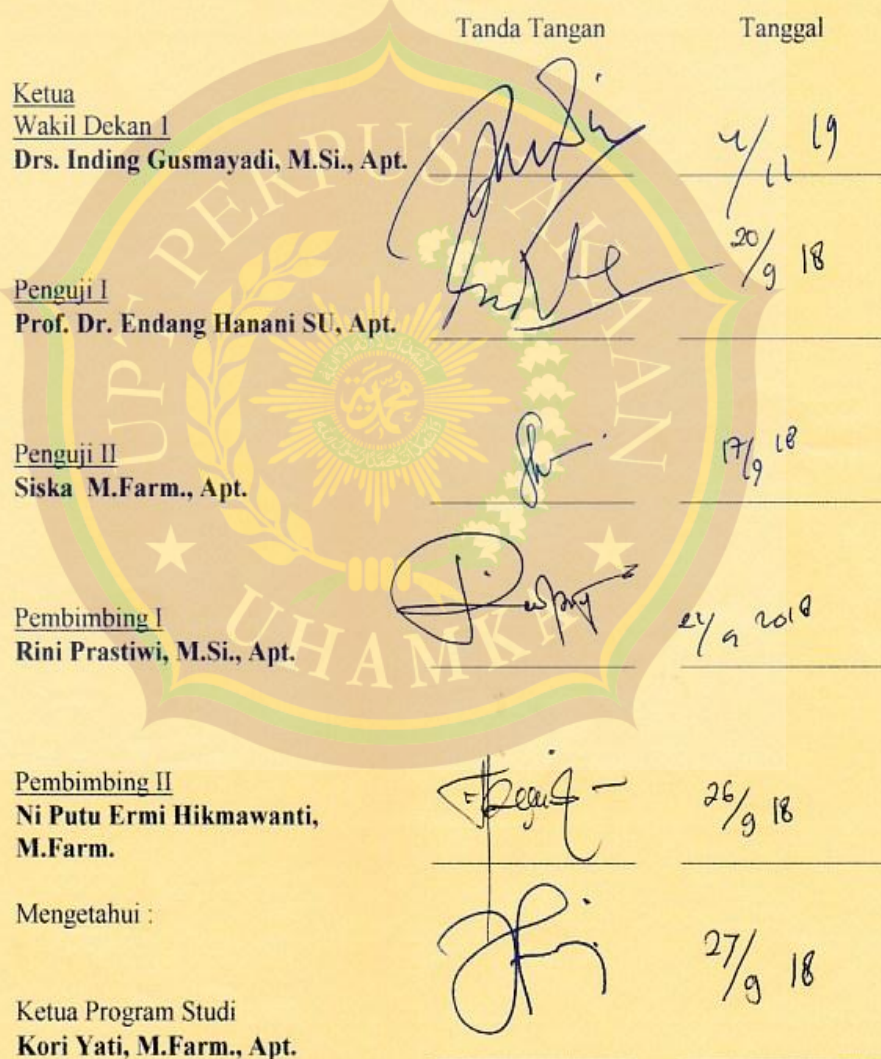 Tanda Tangan Tanggal
Ketua
Wakil Dekan 1
Drs. Inding Gusmayadi, M.Si., Apt.
11 19
20/9 18
Penguji I
Prof. Dr. Endang Hanani SU, Apt.
Penguji II
Siska M.Farm., Apt.
17/9 18
Pembimbing I
Rini Prastiwi, M.Si., Apt.
/9 2018
Pembimbing II
Ni Putu Ermi Hikmawanti,
M.Farm.
26/9 18
Mengetahui :
27/9 18
Ketua Program Studi
Kori Yati, M.Farm., Apt.
UPT PERPUSTAKAAN
UHAMKA